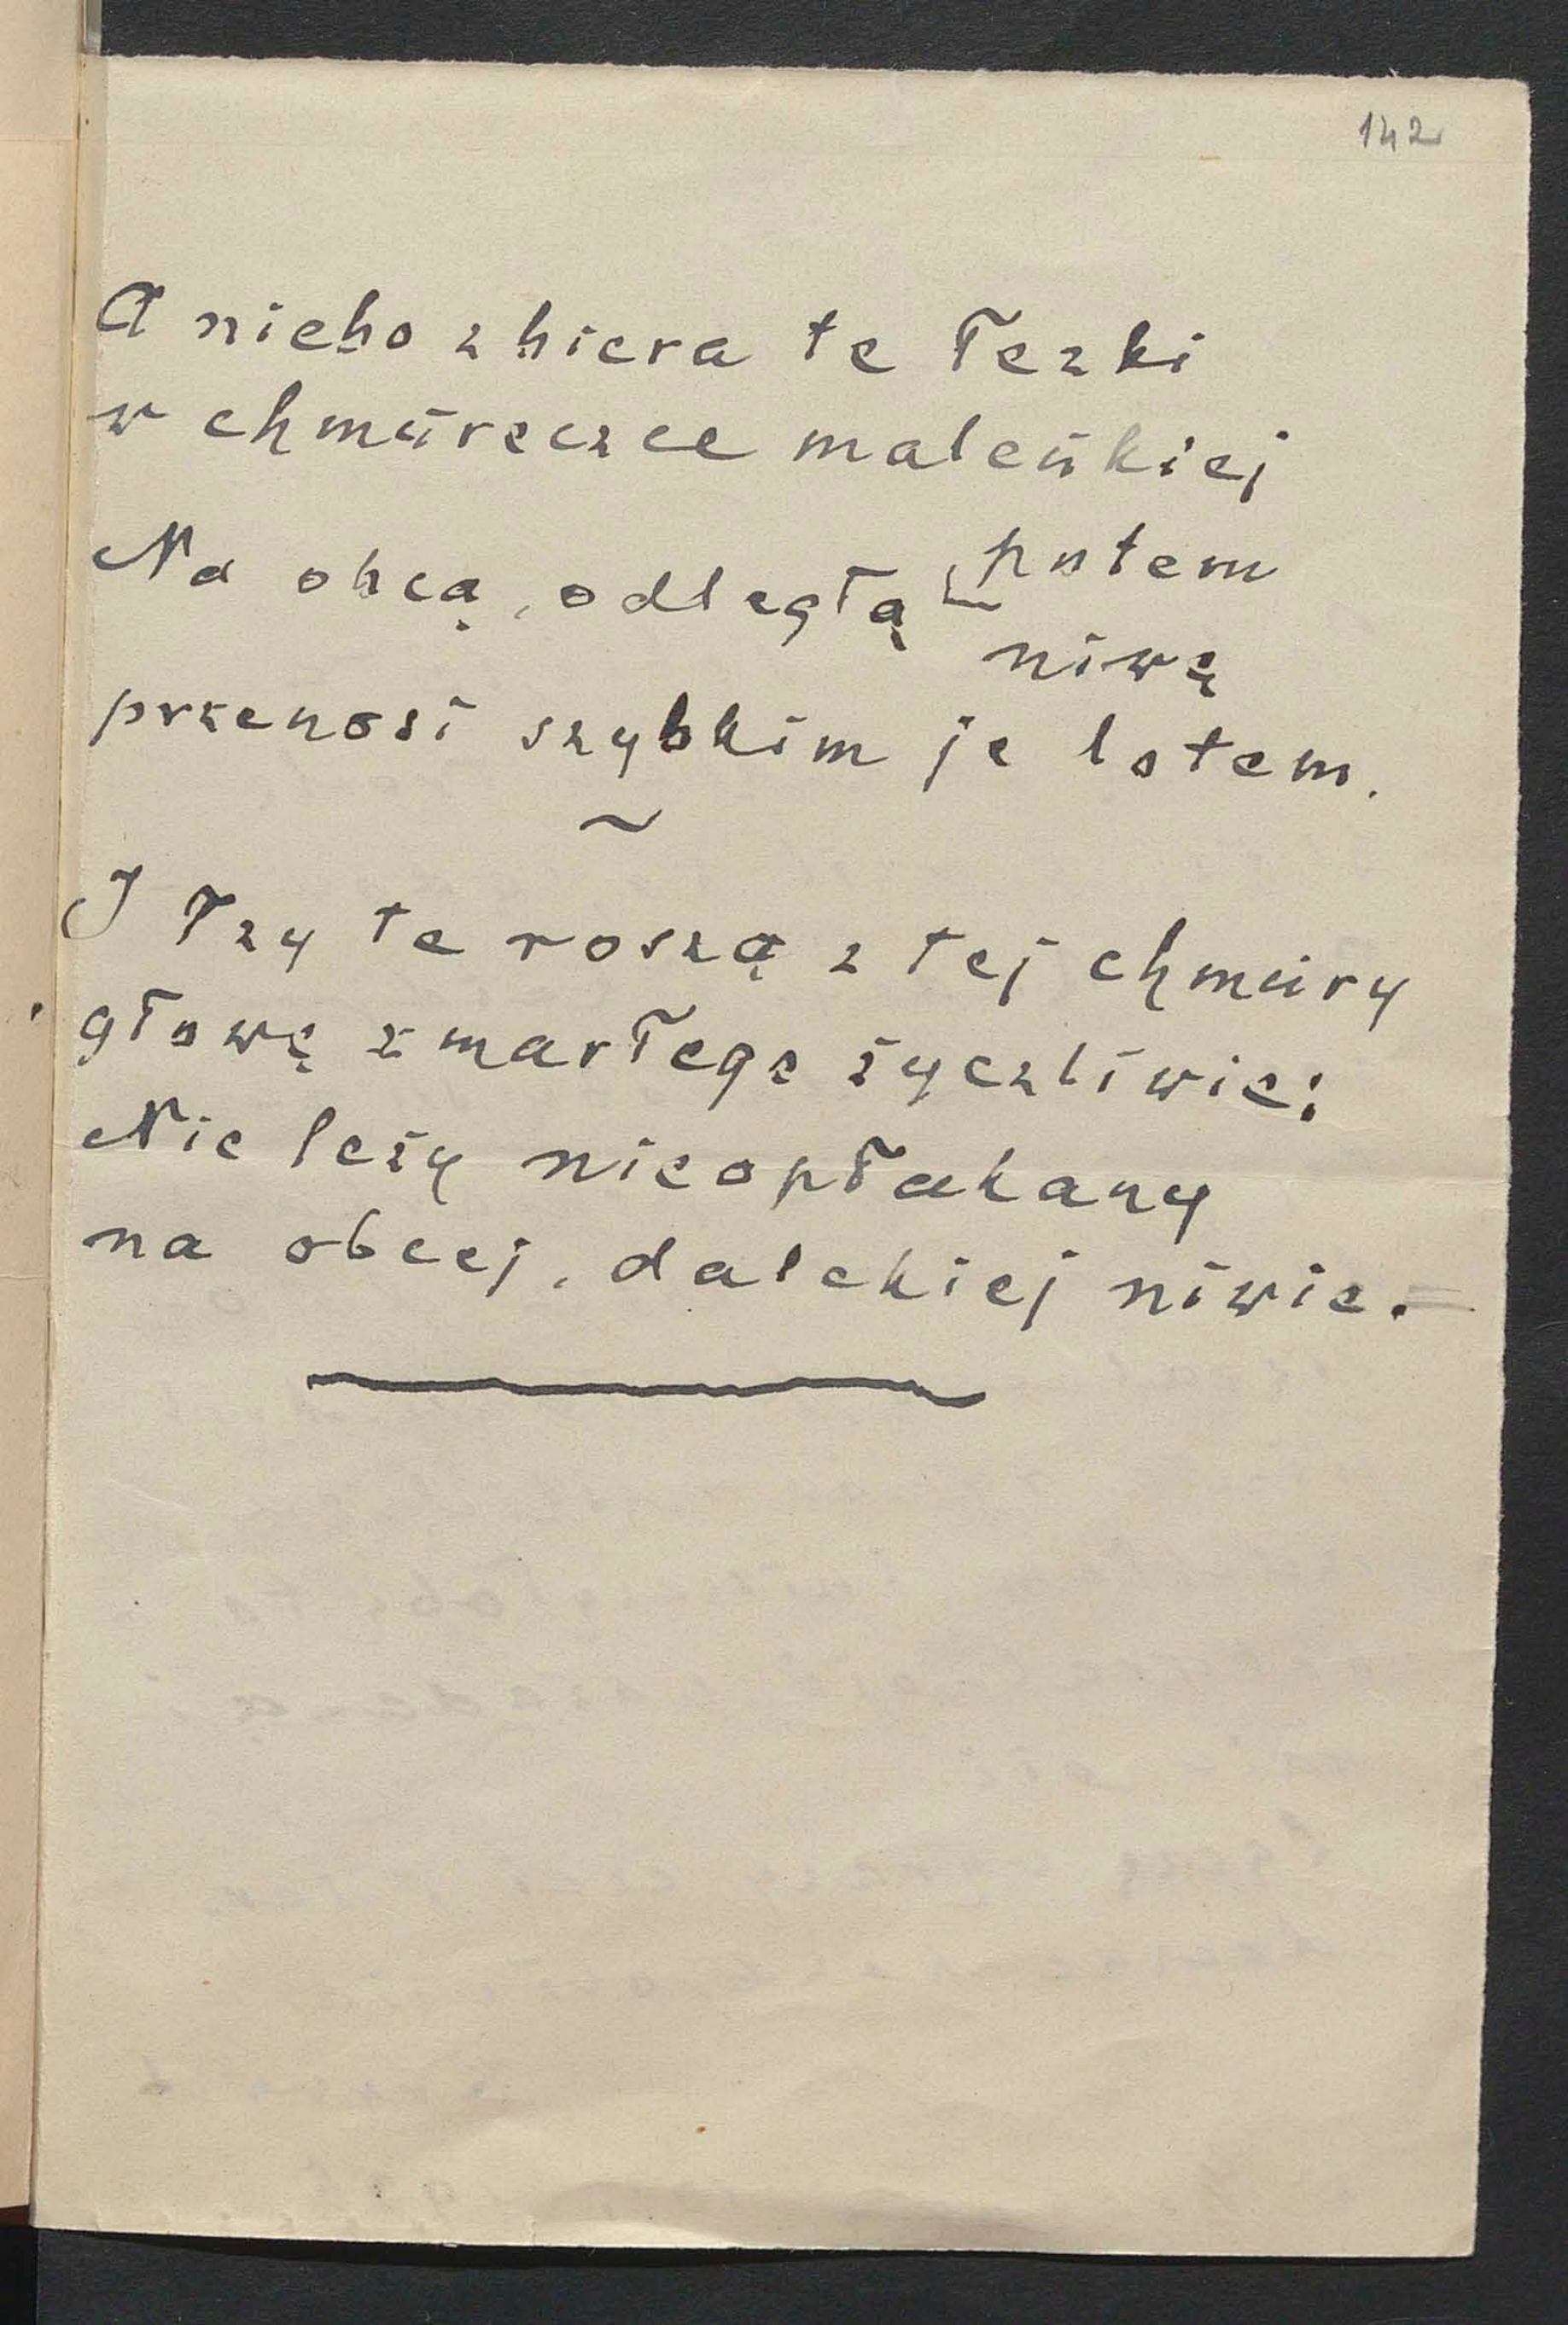 142
A niebo zbiera te łezki
w chmureczce maleńkiej
Na obcą, odległą potem
niwę
przenosi szybkim je lotem.
~
I łzy te roszą z tej chmury
głowę zmarłego życzliwie:
Nie leży nieopłakany
na obcej, dalekiej niwie.